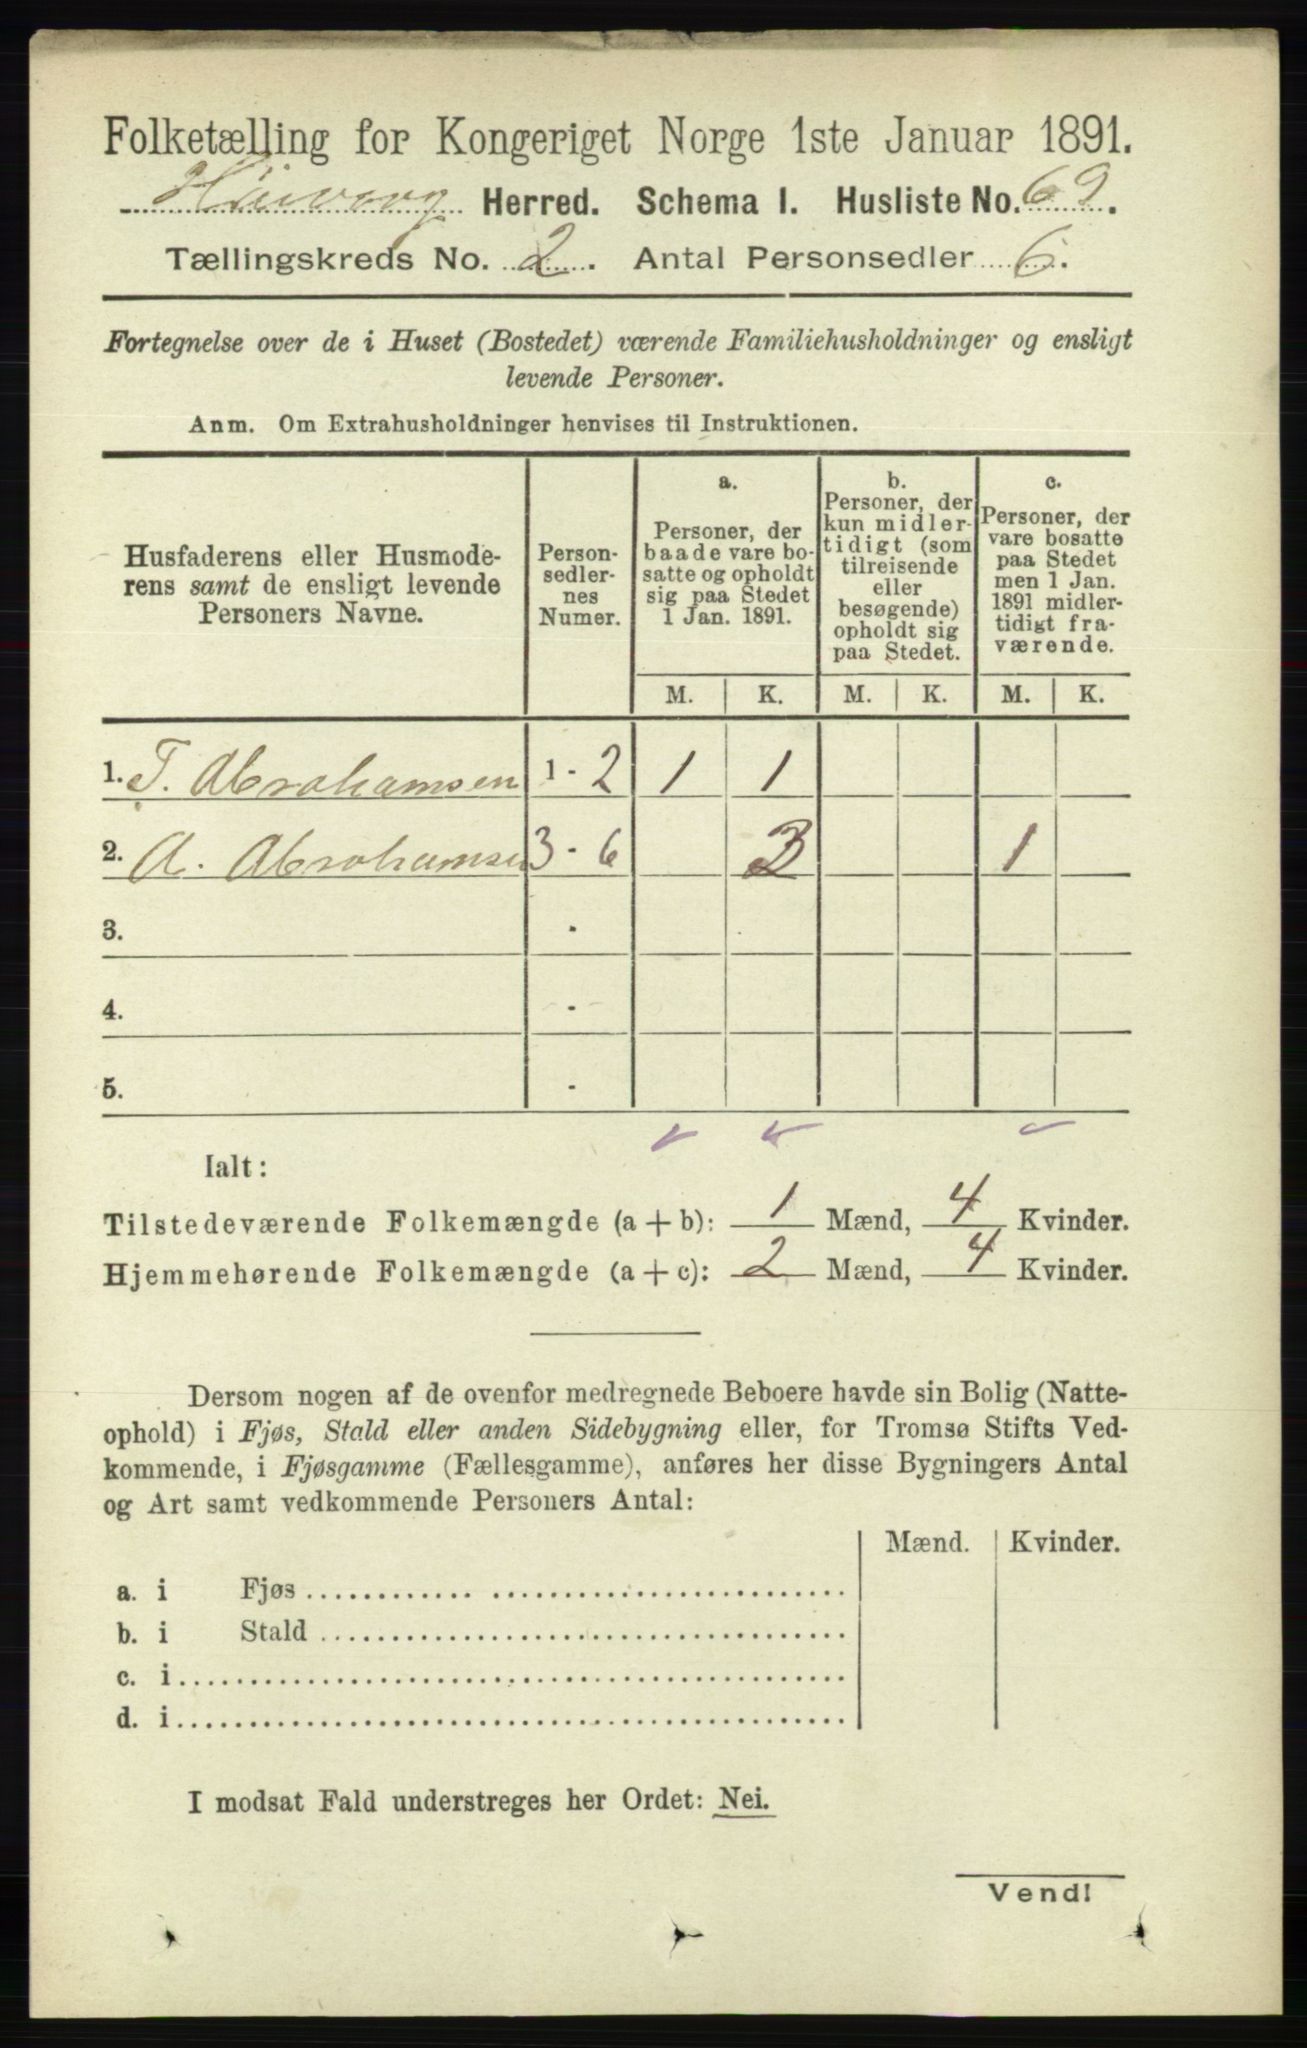 Folketælling for Kongeriget Norge 1ste Januar 1891.
Høivaag Herred. Schema I. Husliste No. 69.
Tællingskreds No. 2. Antal Personsedler 6.
Fortegnelse over de i Huset (Bostedet) værende Familiehusholdninger og ensligt
levende Personer.
Anm. Om Extrahusholdninger henvises til Instruktionen.
Husfaderens eller Husmode-
rens samt de ensligt levende
Personers Navne.
Person-
sedler-
nes
Numer.
a.
Personer, der
baade vare bo-
satte og opholdt
sig paa Stedet
1 Jan. 1891.
b.
Personer, der
kun midler-
tidigt (som
tilreisende
eller
besøgende)
opholdt sig
paa Stedet.
c.
Personer, der
vare bosatte
paa Stedet
men 1 Jan.
1891 midler-
tidigt fra-
værende.
M. K. M. K. M. K.
1. T. Abrahamsen 1 - 2 1 1
2. A. Abrahamsen 3 - 6 3 1
3. -
4. -
5. -
Ialt:
Tilstedeværende Folkemængde (a + b): 1 Mænd, 4 Kvinder.
Hjemmehørende Folkemængde (a + c): 2 Mænd, 4 Kvinder.
Dersom nogen af de ovenfor medregnede Beboere havde sin Bolig (Natte-
ophold) i Fjøs, Stald eller anden Sidebygning eller, for Tromsø Stifts Ved-
kommende, i Fjøsgamme (Fællesgamme), anføres her disse Bygningers Antal
og Art samt vedkommende Personers Antal:
Mænd. Kvinder.
a. i Fjøs
b. i Stald
c. i
d. i
I modsat Fald understreges her Ordet: Nei.
Vend!